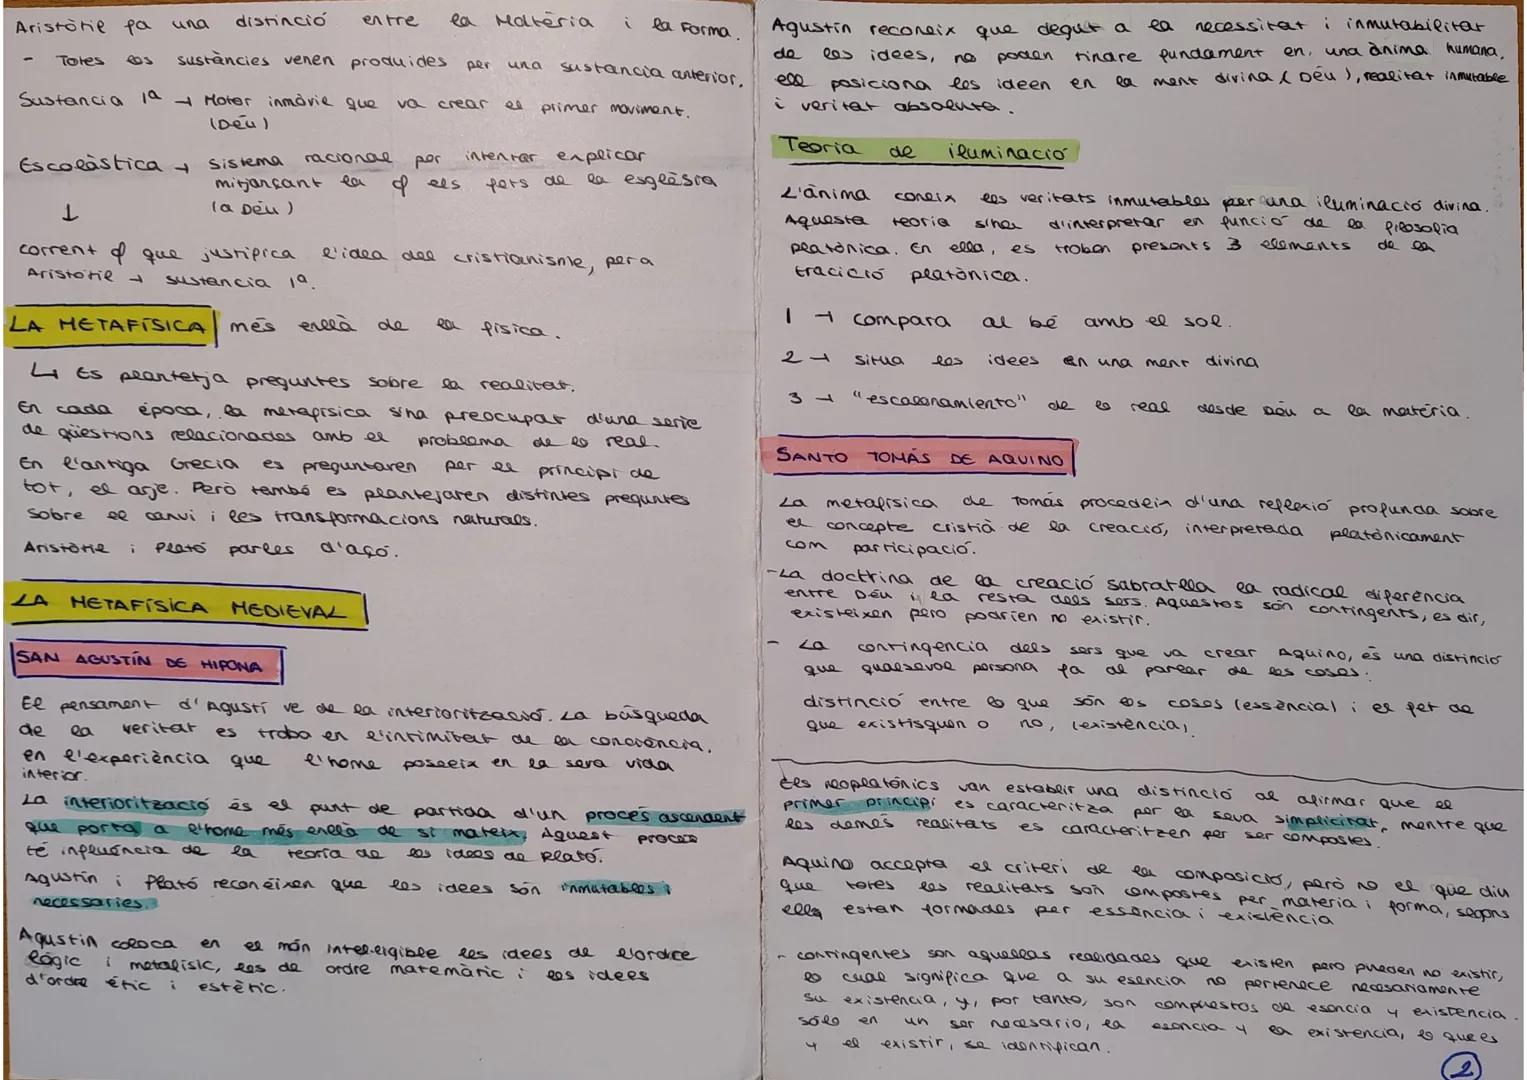 Aristòtie fa una distinció entre la Matèria i la Forma.
- Totes les sustàncies venen produides per una sustancia anterior.
Sustancia 1ª → Motor inmòvie que va crear el primer moviment.
(Déu)
Escolàstica → sistema racional per intentar explicar
mitjançant la ϕ els fets de la església
(a Déu)
↓
corrent ϕ que justifica l'idea del cristianisme, per a
Aristòtie → sustancia 1ª.
LA METAFÍSICA més enllà de la física.
↳ Es plantetja preguntes sobre la realitat.
En cada època, la metafísica s'ha preocupat d'una serie
de qüestions relacionades amb el problema de lo real.
En l'antiga Grecia es preguntaren per el principi de
tot, el arje. Però també es plantejaren distintes preguntes
sobre el canvi i les transformacions naturals.
Aristòtie i Plató parles d'açó.
LA METAFÍSICA MEDIEVAL
SAN AGUSTÍN DE HIPONA
El pensament d'Agustí ve de la interiorització. La búsqueda
de la veritat es troba en l'intimitat de la conciència,
en l'experiència que l'home poseeix en la seva vida
interior.
La interiorització és el punt de partida d'un procés ascendent
que porta a l'home més enllà de si mateix, Aquest procés
té influència de la teoria de les idees de Plató.
Agustín i Plató reconeixen que les idees són inmutables i
necessaries.
Agustín coloca en el món intel·ligible les idees de l'ordre
lògic i metafísic, les de ordre matemàtic i les idees
d'ordre ètic i estètic.
Agustín reconeix que degut a la necessitat i inmutabilitat
de les idees, no poden tindre fundament en una ànima humana,
ell posiciona les ideen en la ment divina (Déu), realitat inmutable
i veritat absoluta.
Teoria de iluminació
L'ànima coneix les veritats inmutables per una iluminació divina.
Aquesta teoria s'hea d'interpretar en funció de la filosofia
platònica. En ella, es troben presents 3 elements de la
tracició platònica.
1 → compara al bé amb el sol.
2 → situa les idees en una ment divina
3 → "escalonamiento" de lo real desde Déu a la matèria.
SANTO TOMÁS DE AQUINO
La metafísica de Tomás procedeix d'una reflexió profunda sobre
el concepte cristià de la creació, interpretada platònicament
com participació.
- La doctrina de la creació sabratlla la radical diferència
entre Déu i la resta dels sers. Aquestos són contingents, es dir,
existeixen pero podrien no existir.
- La contingencia dels sers que va crear Aquino, és una distinció
que qualsevol persona fa al parlar de les coses:
distinció entre lo que són les coses (essència) i el fet de
que existisquen o no, (existència).
Els neoplatònics van establir una distinció al afirmar que el
primer principi es caracteritza per la seva simplicitat, mentre que
les demés realitats es caracteritzen per ser compostes.
Aquino accepta el criteri de la composició, però no el que diu
que totes les realitats són compostes per materia i forma, segons
ells estan formades per essència i existència
- contingentes son aquellas realidades que existen pero pueden no existir,
lo cual significa que a su esencia no pertenece necesariamente
su existencia, y, por tanto, son compuestos de esencia y existencia.
sólo en un ser necesario, la esencia y la existencia, lo que es
y el existir, se identifican.
2